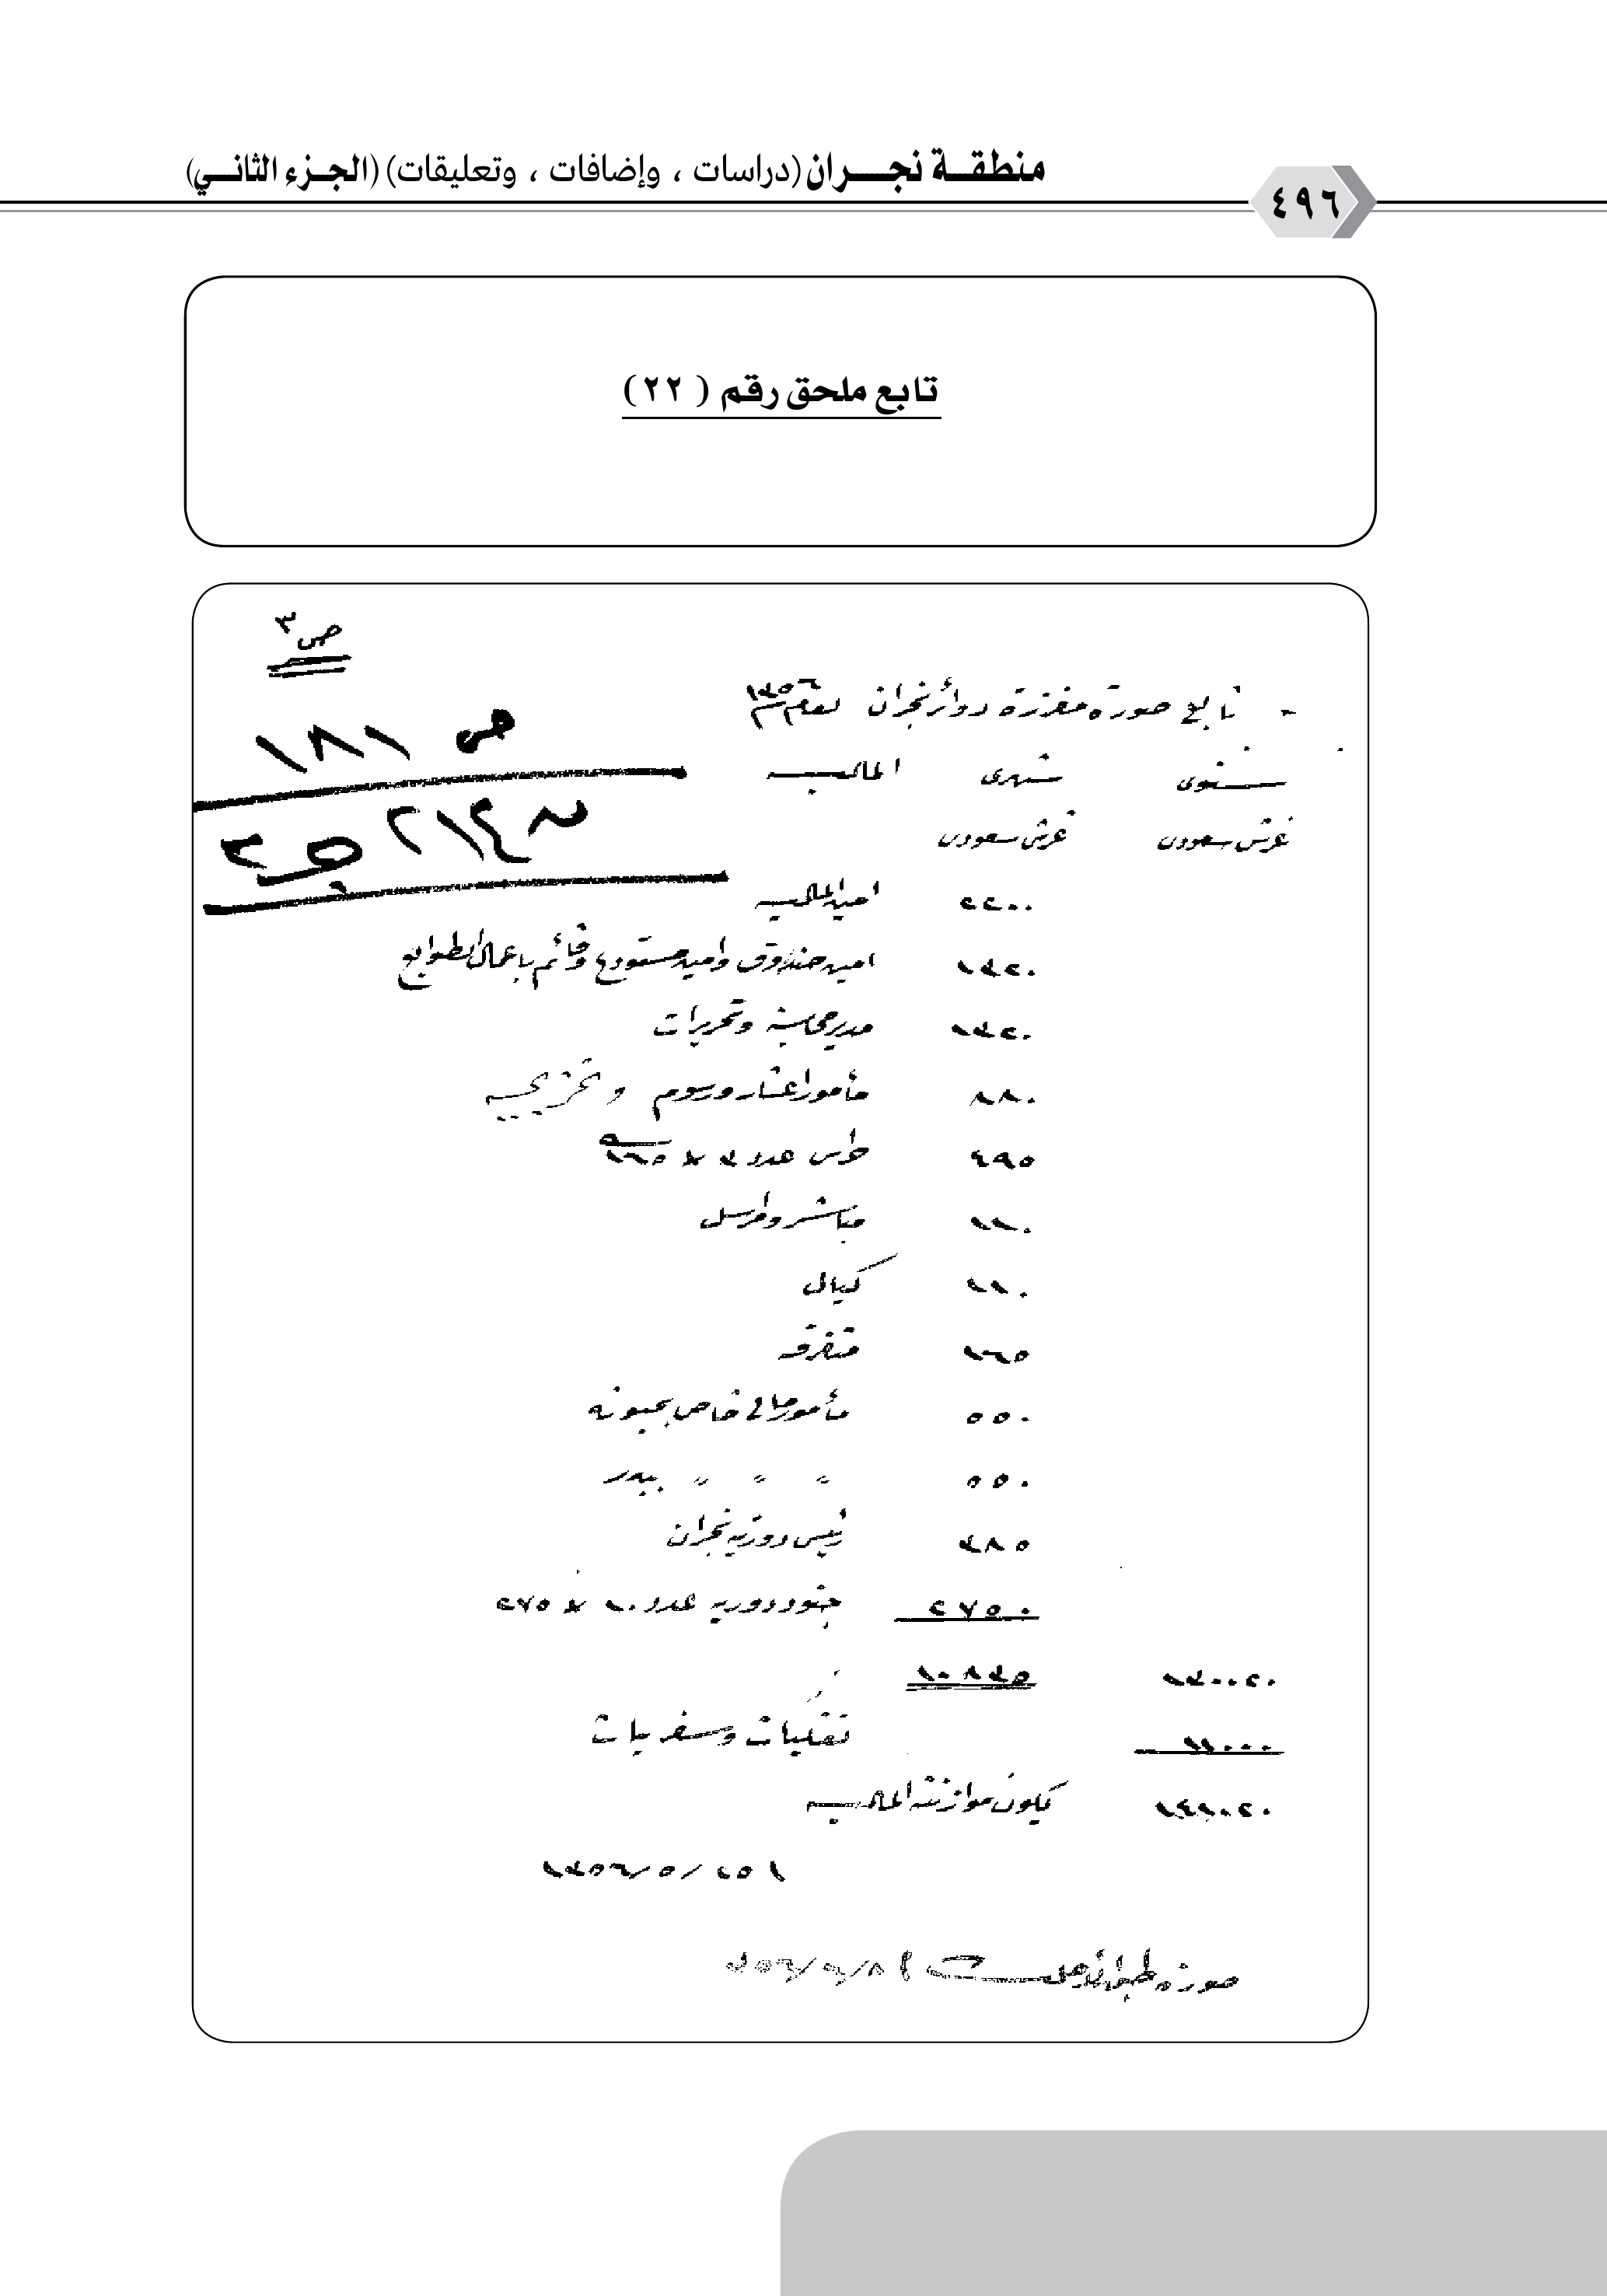 منطقة نجران (دراسات ، وإضافات ، وتعليقات) (الجزء الثاني)
٤٩٦
تابع ملحق رقم ( ٢٢ )
ص ٣
- تابع صورة مفززة دوائر نجران لعام ١٣٥٦
ص ١٨١
سنوى شهرى المالية
غرش سعودى غرش سعودى
٢٢٠٠ امين المالية
١٣٢٠ امين صندوق وامين مستودع وقائم باعمال الطوابع
١٣٢٠ مدير محاسبة وتحريرات
٨٨٠ مأمور اعشار ورسوم و
٤٩٥ حراس عدد ٣ × ١٦٥
١١٠ مباشر ومراسل
١١٠ كيال
١٦٥ متفرقه
٥٥٠ مأمور مالى خاص بحبونه
٥٥٠ 〃 〃 〃 ببدر
٣٨٥ رئيس دورية نجران
٢٧٥٠ جنود دوريه عدد ١٠ × ٢٧٥
١٣٠٠٢٠ ١٠٨٣٥
١١٠٠٠ نقليات وسفريات
١٤١٠٢٠ يكون موازنة المالية
٢٥/٥/١٣٥٦
صورة طبق الأصل